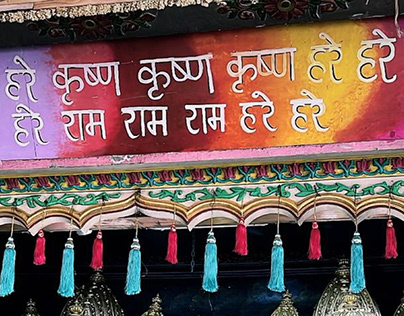 हरे कृष्ण कृष्ण कृष्ण हरे हरे
हरे राम राम राम हरे हरे